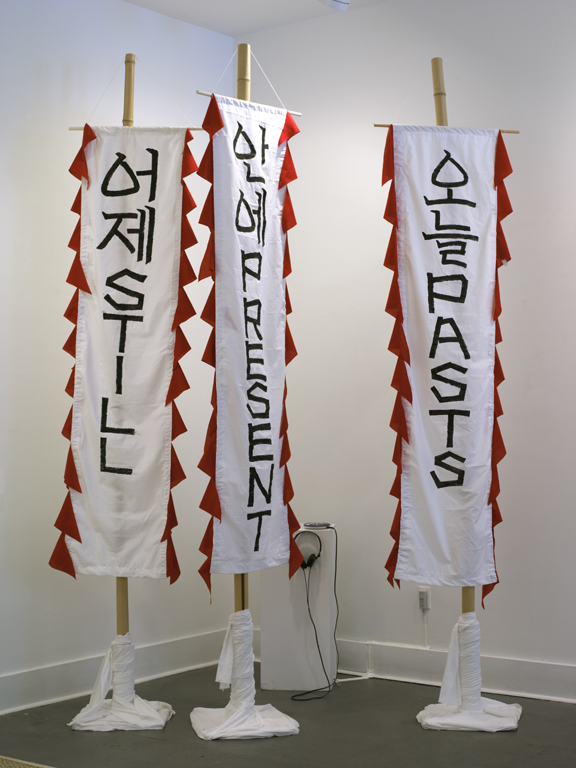 어제STILL
안에PRESENT
오늘PASTS